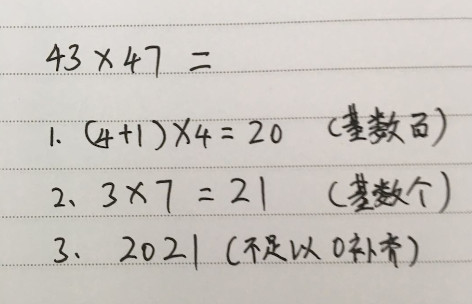 43×47=
1. (4+1)×4=20 (基数百)
2、3×7=21 (基数个)
3、2021(不足以0补齐)